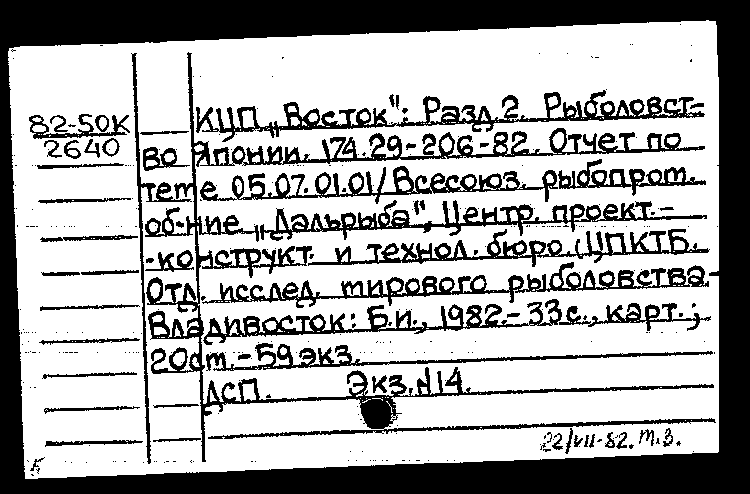 82-50К
2640
КЦП „Восток": Разд.2. Рыболовст-
во Японии. 174.29-206-82. Отчет по
теме 05.07.01.01/Всесоюз. рыбопром.
об-ние „Дальрыба", Центр. проект.-
-конструкт. и технол. бюро. (ЦПКТБ.
Отд. исслед. мирового рыболовства.-
Владивосток: Б.и., 1982.-33с., карт.;
20см.-59экз.
ДСП. Экз.№14.
22/VII-82. т.з.